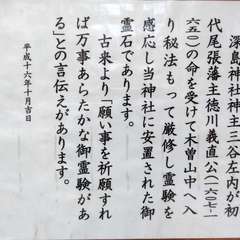 深島神社神主三谷左内が初
代尾張藩主徳川義直公(一六〇七-一
六五〇)の命を受けて木曽山中へ入
り秘法もって厳修し霊験を
感応し当神社に安置された御
霊石であります。
古来より「願い事を祈願すれ
ば万事あらたかな御霊験があ
る」との言伝えがあります。
平成十六年十月吉日